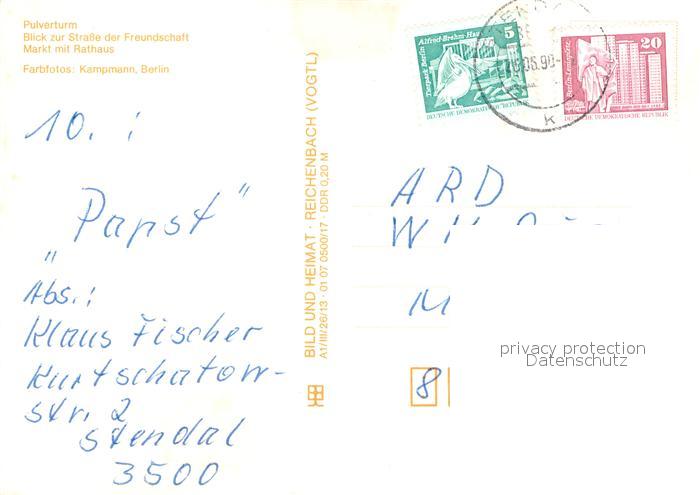 Pulverturm
Blick zur Straße der Freundschaft
Markt mit Rathaus
Farbfotos: Kampmann, Berlin
10. :
"Papst"
Abs.:
Klaus Fischer
Kurtschatow-
str. 2
Stendal
3500
BILD UND HEIMAT · REICHENBACH (VOGTL)
A1/III/26/13 · 01 07 0500/17 · DDR 0,20 M
Tierpark Berlin
Alfred-Brehm-Haus
5
DEUTSCHE DEMOKRATISCHE REPUBLIK
Berlin-Leninplatz
20
DEUTSCHE DEMOKRATISCHE REPUBLIK
05.90
k
ARD
M
8
privacy protection
Datenschutz